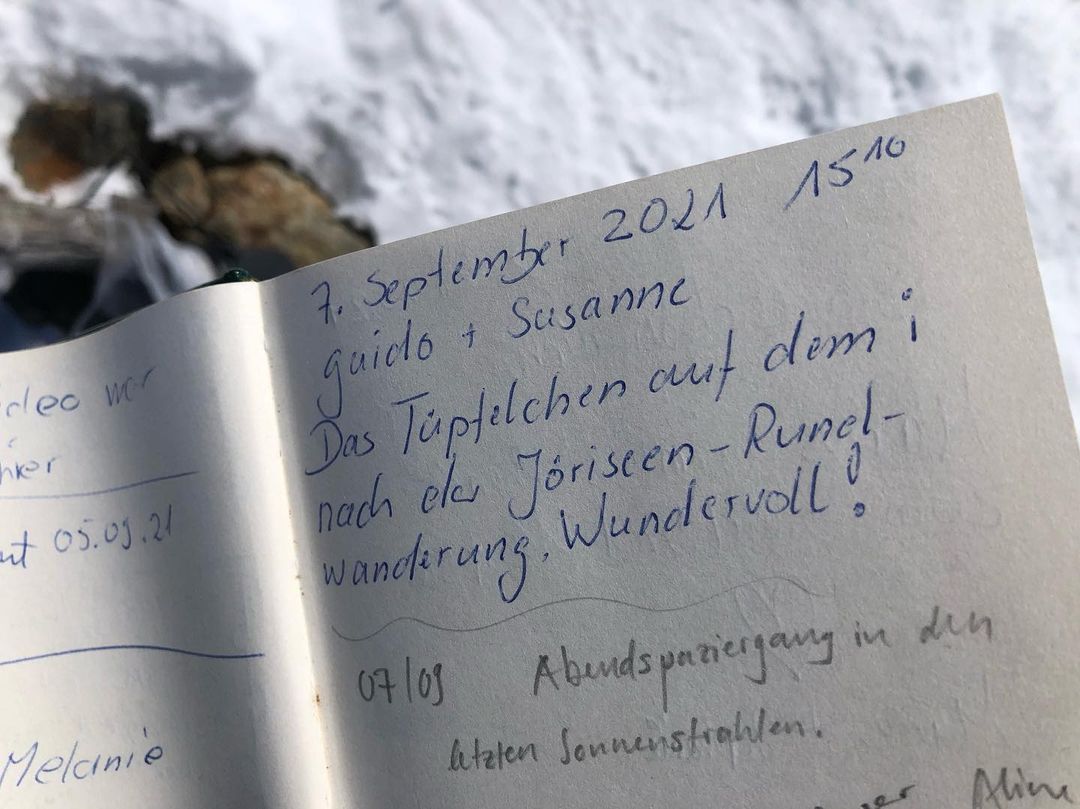 war
05.09.21
Melanie
7. September 2021 15¹⁰
guido + Susanne
Das Tüpfelchen auf dem i
nach der Jöriseen-Rund-
wanderung. Wundervoll!
07/09 Abendspaziergang in den
letzten Sonnenstrahlen.
Aline